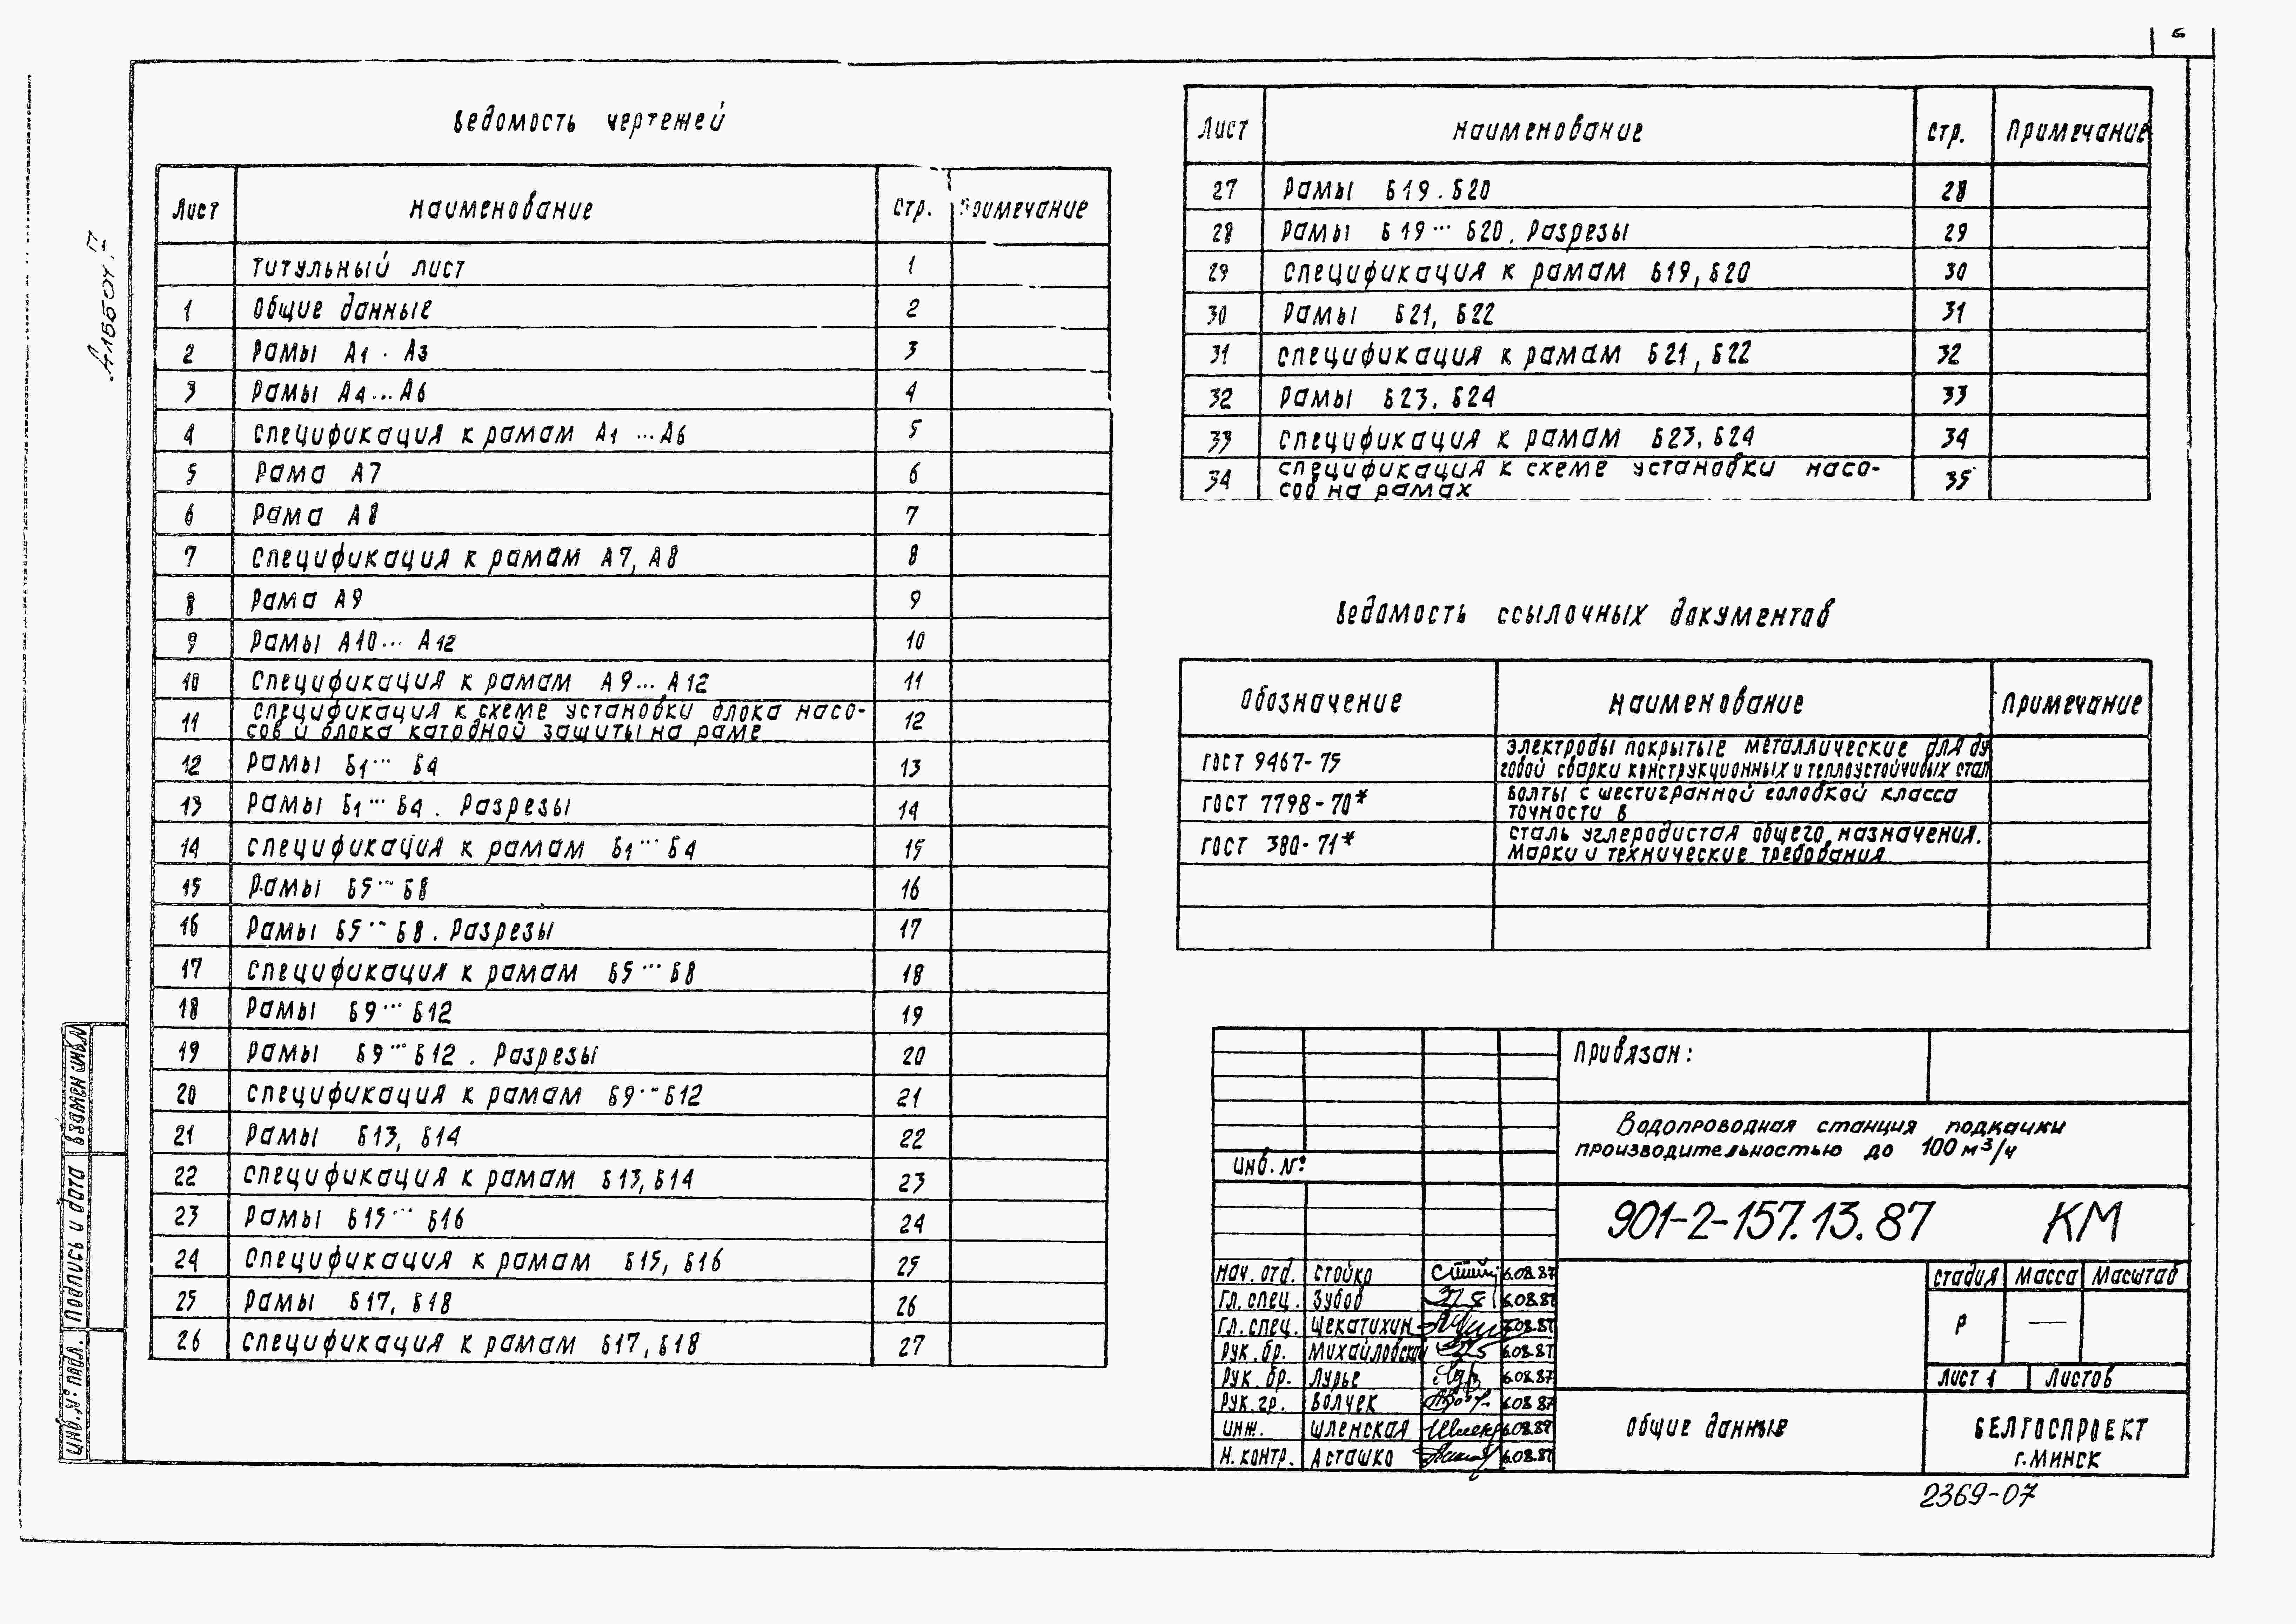 Ведомость чертежей
Лист Наименование Стр. Примечание
Титульный лист 1
1 Общие данные 2
2 Рамы А1 . А3 3
3 Рамы А4...А6 4
4 Спецификация к рамам А1 ...А6 5
5 Рама А7 6
6 Рама А8 7
7 Спецификация к рамам А7, А8 8
8 Рама А9 9
9 Рамы А10... А12 10
10 Спецификация к рамам А9... А12 11
11 Спецификация к схеме установки блока насо-
сов и блока катодной защиты на раме 12
12 Рамы Б1... Б4 13
13 Рамы Б1... Б4. Разрезы 14
14 Спецификация к рамам Б1...Б4 15
15 Рамы Б5...Б8 16
16 Рамы Б5...Б8. Разрезы 17
17 Спецификация к рамам Б5...Б8 18
18 Рамы Б9...Б12 19
19 Рамы Б9...Б12. Разрезы 20
20 Спецификация к рамам Б9...Б12 21
21 Рамы Б13, Б14 22
22 Спецификация к рамам Б13, Б14 23
23 Рамы Б15... Б16 24
24 Спецификация к рамам Б15, Б16 25
25 Рамы Б17, Б18 26
26 Спецификация к рамам Б17, Б18 27
Лист Наименование Стр. Примечание
27 Рамы Б19. Б20 28
28 Рамы Б19... Б20. Разрезы 29
29 Спецификация к рамам Б19, Б20 30
30 Рамы Б21, Б22 31
31 Спецификация к рамам Б21, Б22 32
32 Рамы Б23, Б24 33
33 Спецификация к рамам Б23, Б24 34
34 Спецификация к схеме установки насо-
сов на рамах 35
Ведомость ссылочных документов
Обозначение Наименование Примечание
ГОСТ 9467-75 Электроды покрытые металлические для ду
говой сварки конструкционных и теплоустойчивых стал
ГОСТ 7798-70* Болты с шестигранной головкой класса
точности В
ГОСТ 380-71* Сталь углеродистая общего назначения.
Марки и технические требования
Привязан:
Инв. №:
Водопроводная станция подкачки
производительностью до 100 м³/ч
901-2-157.13.87 КМ
Нач. отд. Стойко 6.08.87
Гл. спец. Зубов 6.08.87
Гл. спец. Щекатихин 6.08.87
Рук. бр. Михайловский 6.08.87
Рук. бр. Лурье 6.08.87
Рук. гр. Волчек 6.08.87
Инж. Шленская 6.08.87
Н. контр. Асташко 6.08.87
Стадия Масса Масштаб
Р —
Лист 1 Листов
Общие данные
БЕЛГОСПРОЕКТ
г. Минск
2369-07
Альбом
Инв. № подл. Подпись и дата Взамен инв. №